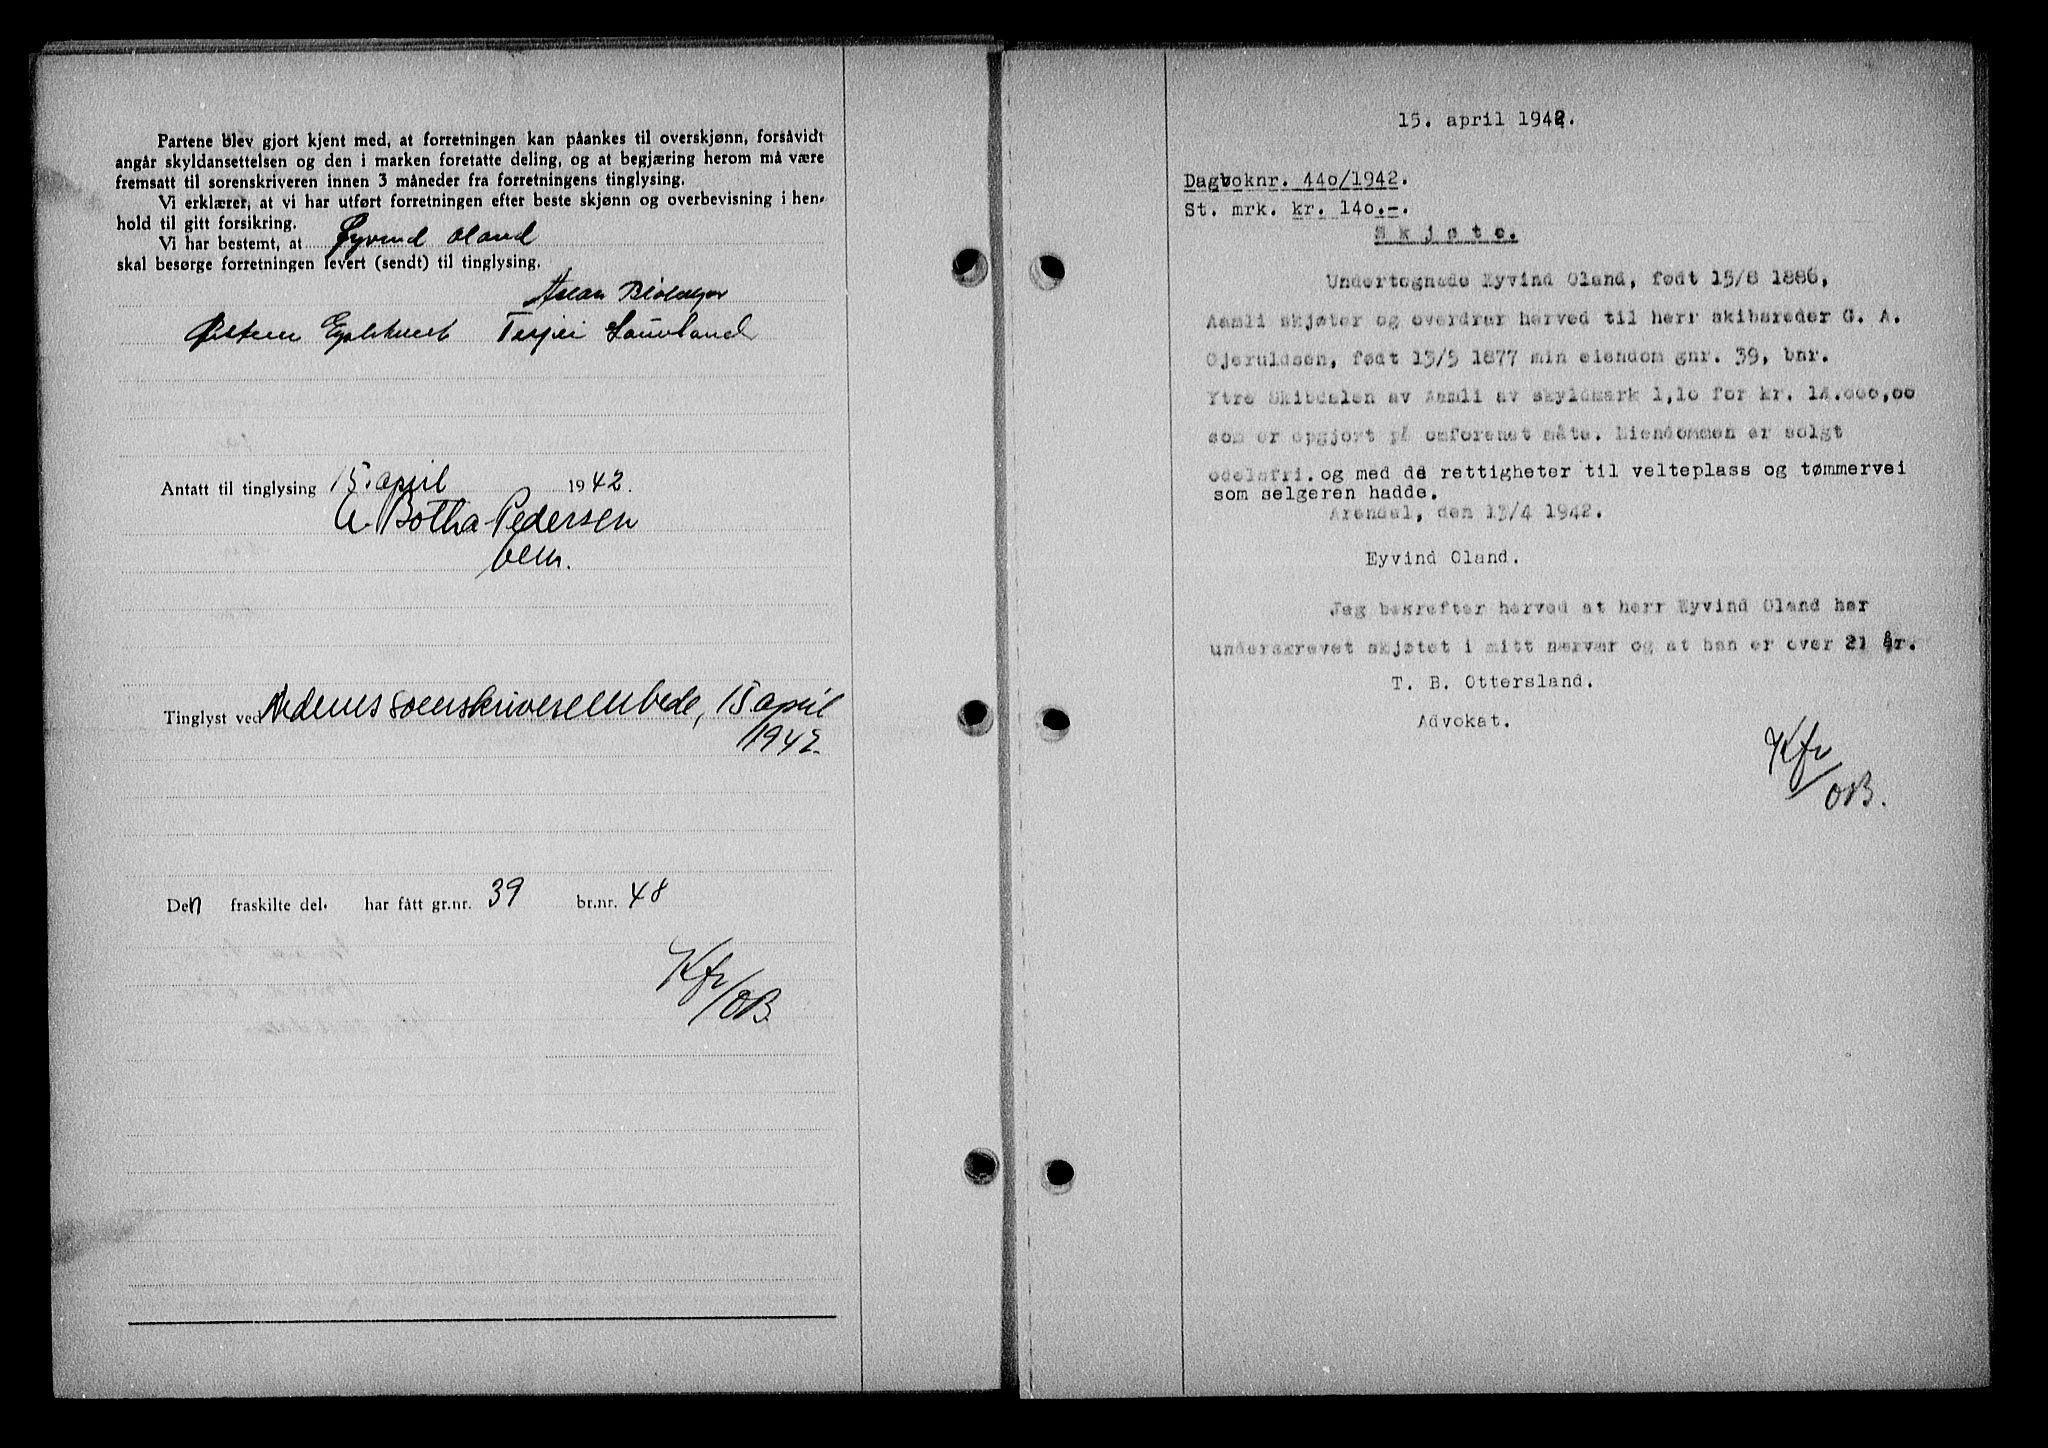 Partene blev gjort kjent med, at forretningen kan påankes til overskjønn, forsåvidt
angår skyldansettelsen og den i marken foretatte deling, og at begjæring herom må være
fremsatt til sorenskriveren innen 3 måneder fra forretningens tinglysing.
Vi erklærer, at vi har utført forretningen efter beste skjønn og overbevisning i hen-
hold til gitt forsikring.
Vi har bestemt, at Øyvind Oland
skal besørge forretningen levert (sendt) til tinglysing.
Terjei Sauvland
Antatt til tinglysing 15. april 1942.
A. Botha-Pedersen
Tinglyst ved Nedenes sorenskriverembede, 15 april
1942.
Den fraskilte del. har fått gr.nr. 39 br.nr. 48
Kfr/OB.
15. april 1942.
Dagboknr. 440/1942.
St. mrk. kr. 140.-.
Skjøte.
Undertegnede Eyvind Oland, født 15/8 1886,
Aamli skjøter og overdrar herved til herr skibsreder G. A.
Gjeruldsen, født 13/5 1877 min eiendom gnr. 39, bnr.
Ytre Skibdalen av Aamli av skyldmark 1,10 for kr. 14.000,00
som er opgjort på omforenet måte. Eiendommen er solgt
odelsfri. og med de rettigheter til velteplass og tømmervei
som selgeren hadde.
Arendal, den 13/4 1942.
Eyvind Oland.
Jag bekrefter herved at herr Eyvind Oland har
underskrevet skjøtet i mitt nærvær og at han er over 21 år.
T. B. Ottersland.
Advokat.
Kfr/OB.